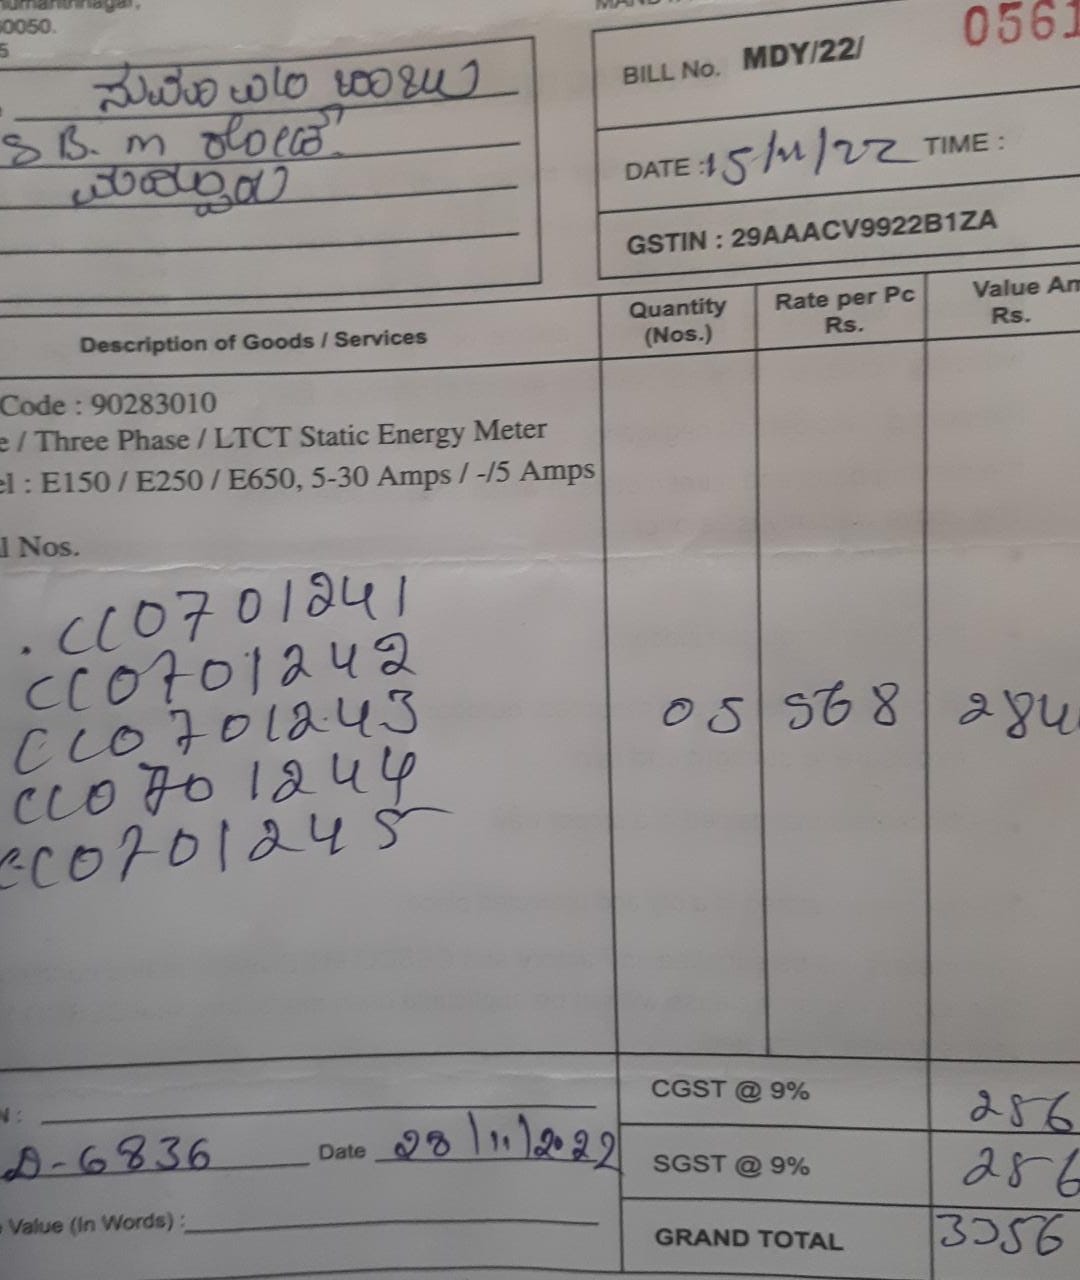 0050.
5
BILL No. MDY/22/ 0561
S B. m ರೋಡ್
DATE : 15/11/22 TIME :
GSTIN : 29AAACV9922B1ZA
Description of Goods / Services Quantity (Nos.) Rate per Pc Rs. Value Am Rs.
Code : 90283010
e / Three Phase / LTCT Static Energy Meter
el : E150 / E250 / E650, 5-30 Amps / -/5 Amps
l Nos.
CC0701241
CC0701242
CC0701243
CC0701244
CC0701245
05 568 284
CGST @ 9% 256
N :
D-6836 Date 28/11/2022
SGST @ 9% 256
Value (In Words) :
GRAND TOTAL 3356